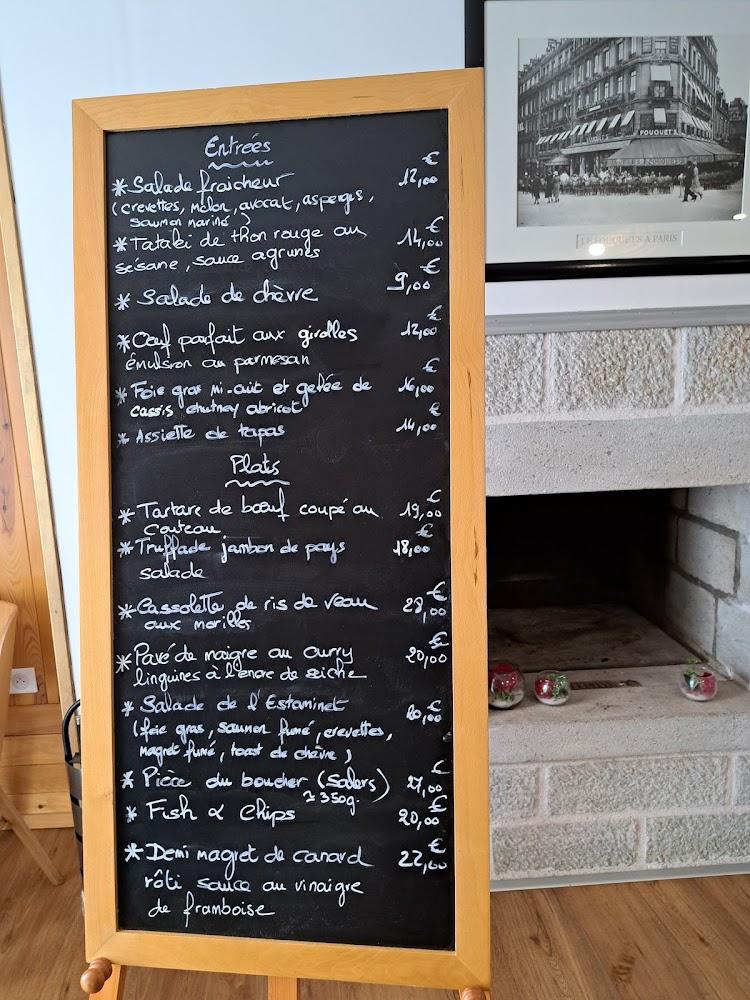 Entrées
€
* Salade fraicheur 12,00
(crevettes, melon, avocat, asperges,
saumon mariné)
€
* Tataki de thon rouge au 14,00
sésane, sauce agrumes
€
* Salade de chèvre 9,00
€
* Oeuf parfait aux girolles 12,00
émulsion au parmesan
€
* Foie gras mi-cuit et gelée de 16,00
cassis chutney abricot
€
* Assiette de tapas 14,00
Plats
€
* Tartare de bœuf coupé au 19,00
couteau
€
* Truffade jambon de pays 18,00
salade
€
* Cassolette de ris de veau 28,00
aux morilles
€
* Pavé de maigre au curry 20,00
linguines à l'encre de seiche
€
* Salade de l'Estaminet 20,00
(foie gras, saumon fumé, crevettes,
magret fumé, toast de chèvre)
€
* Pièce du boucher (Salers) 27,00
≃ 350g.
€
* Fish & Chips 20,00
€
* Demi magret de canard 22,00
rôti sauce au vinaigre
de framboise
FOUQUET'S
LE FOUQUET'S A PARIS